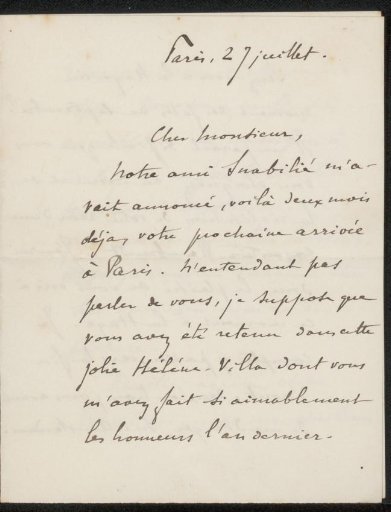 Paris, 27 juillet.
Cher Monsieur,
Notre ami Snabilié m'a-
vait annoncé, voilà deux mois
déjà, votre prochaine arrivée
à Paris. N'entendant pas
parler de vous, je suppose que
vous avez été retenu dans cette
jolie Héléna-Villa dont vous
m'avez fait si aimablement
les honneurs l'an dernier.